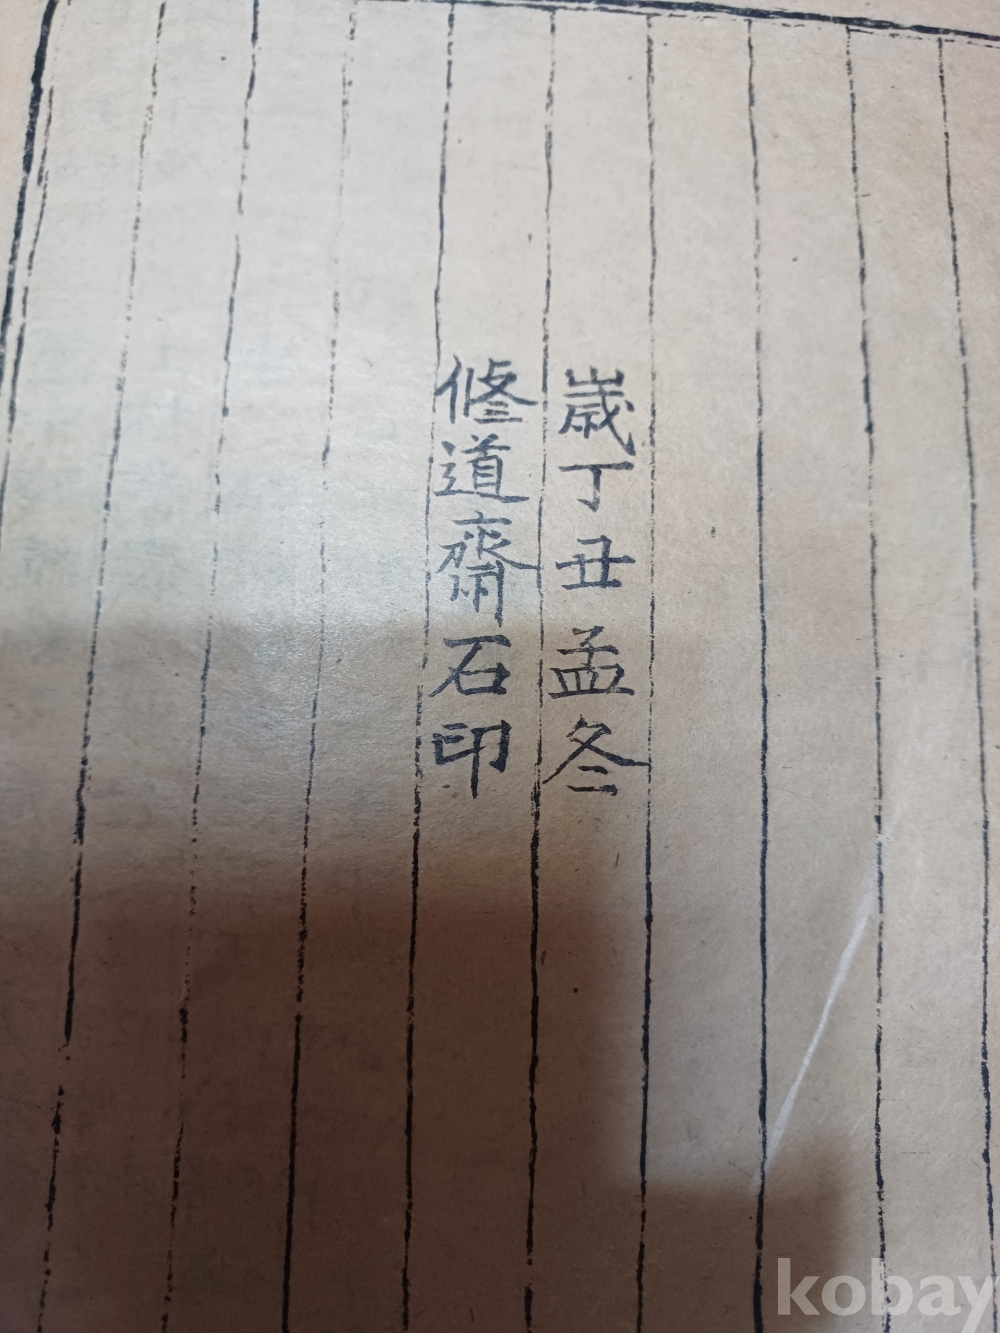 歲丁丑孟冬
修道齋石印
kobay